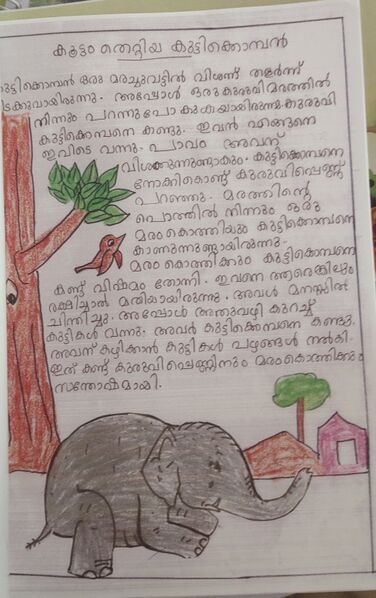 കൂട്ടം തെറ്റിയ കുട്ടിക്കൊമ്പൻ
കുട്ടിക്കൊമ്പൻ ഒരു മരച്ചുവട്ടിൽ വിശന്ന് തളർന്ന്
കിടക്കുവായിരുന്നു. അപ്പോൾ ഒരു കുരുവി മരത്തിൽ
നിന്നും പറന്നു പോകുകയായിരുന്നു. കുരുവി
കുട്ടിക്കൊമ്പനെ കണ്ടു. ഇവൻ എങ്ങനെ
ഇവിടെ വന്നു. പാവം അവന്
വിശക്കുന്നുണ്ടാകും. കുട്ടിക്കൊമ്പനെ
നോക്കികൊണ്ട് കുരുവിപ്പെണ്ണ്
പറഞ്ഞു. മരത്തിന്റെ
പൊത്തിൽ നിന്നും ഒരു
മരംകൊത്തിയും കുട്ടിക്കൊമ്പനെ
കാണുന്നുണ്ടായിരുന്നു.
മരംകൊത്തിക്കും കുട്ടിക്കൊമ്പനെ
കണ്ട് വിഷമം തോന്നി. ഇവനെ ആരെങ്കിലും
രക്ഷിച്ചാൽ മതിയായിരുന്നു. അവൾ മനസ്സിൽ
ചിന്തിച്ചു. അപ്പോൾ അതുവഴി കുറച്ച്
കുട്ടികൾ വന്നു. അവർ കുട്ടിക്കൊമ്പനെ കണ്ടു.
അവന് കഴിക്കാൻ കുട്ടികൾ പഴങ്ങൾ നൽകി.
ഇത് കണ്ട് കുരുവിപ്പെണ്ണിനും മരംകൊത്തിക്കും
സന്തോഷമായി.